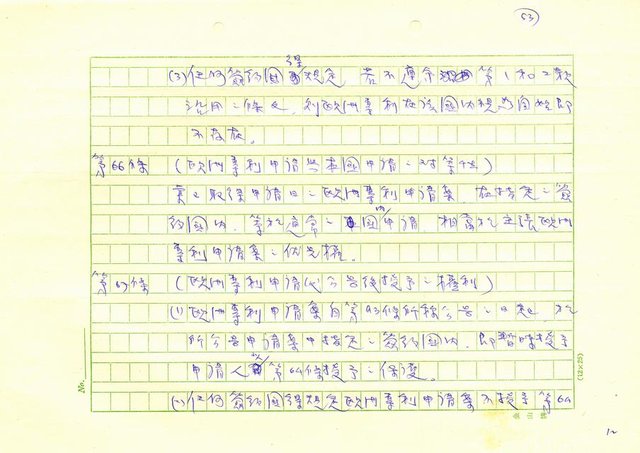 (53)
(3) 任何簽約國得規定,若不遵守第1和2款
沿用之條文,則歐洲專利在該國內視為自始即
不存在。
第66條 (歐洲專利申請與本國申請之對等性)
業已取得申請日之歐洲專利申請案,在指定之簽
約國內,等於通常之國內申請,相當於主張歐洲
專利申請案之優先權。
第67條 (歐洲專利申請案公告後授予之權利)
(1) 歐洲專利申請案自第93條所稱公告之日起,於
所公告申請案中指定之簽約國內,即暫時授予
申請人以第64條授予之保護。
(2) 任何簽約國得規定歐洲專利申請案不授予第64
No.
(12×25)
12